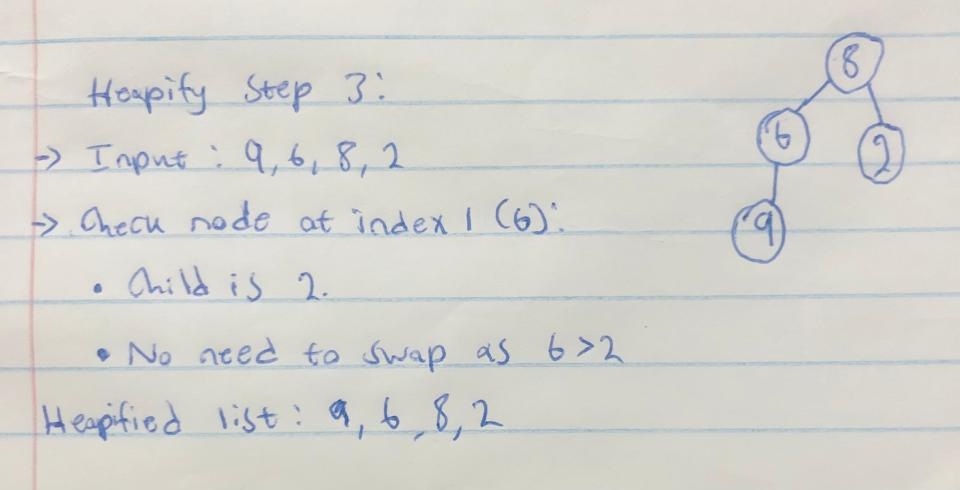 Heapify Step 3:
→ Input : 9, 6, 8, 2
→ Check node at index 1 (6):
• Child is 2.
• No need to swap as 6>2
Heapified list : 9, 6, 8, 2
8
6 2
9